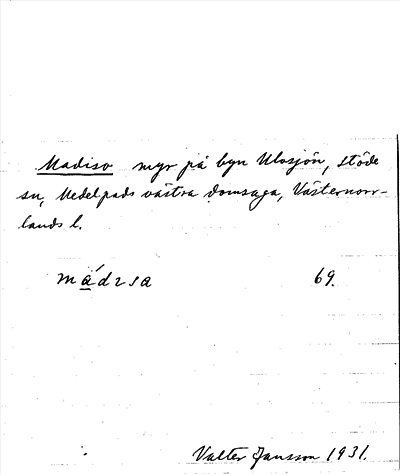 Madiso myr på byn Ulosjön, Stöde
sn, Medelpads västra domsaga, Västernorr-
lands l.
mádısa 69.
Valter Jansson 1931.